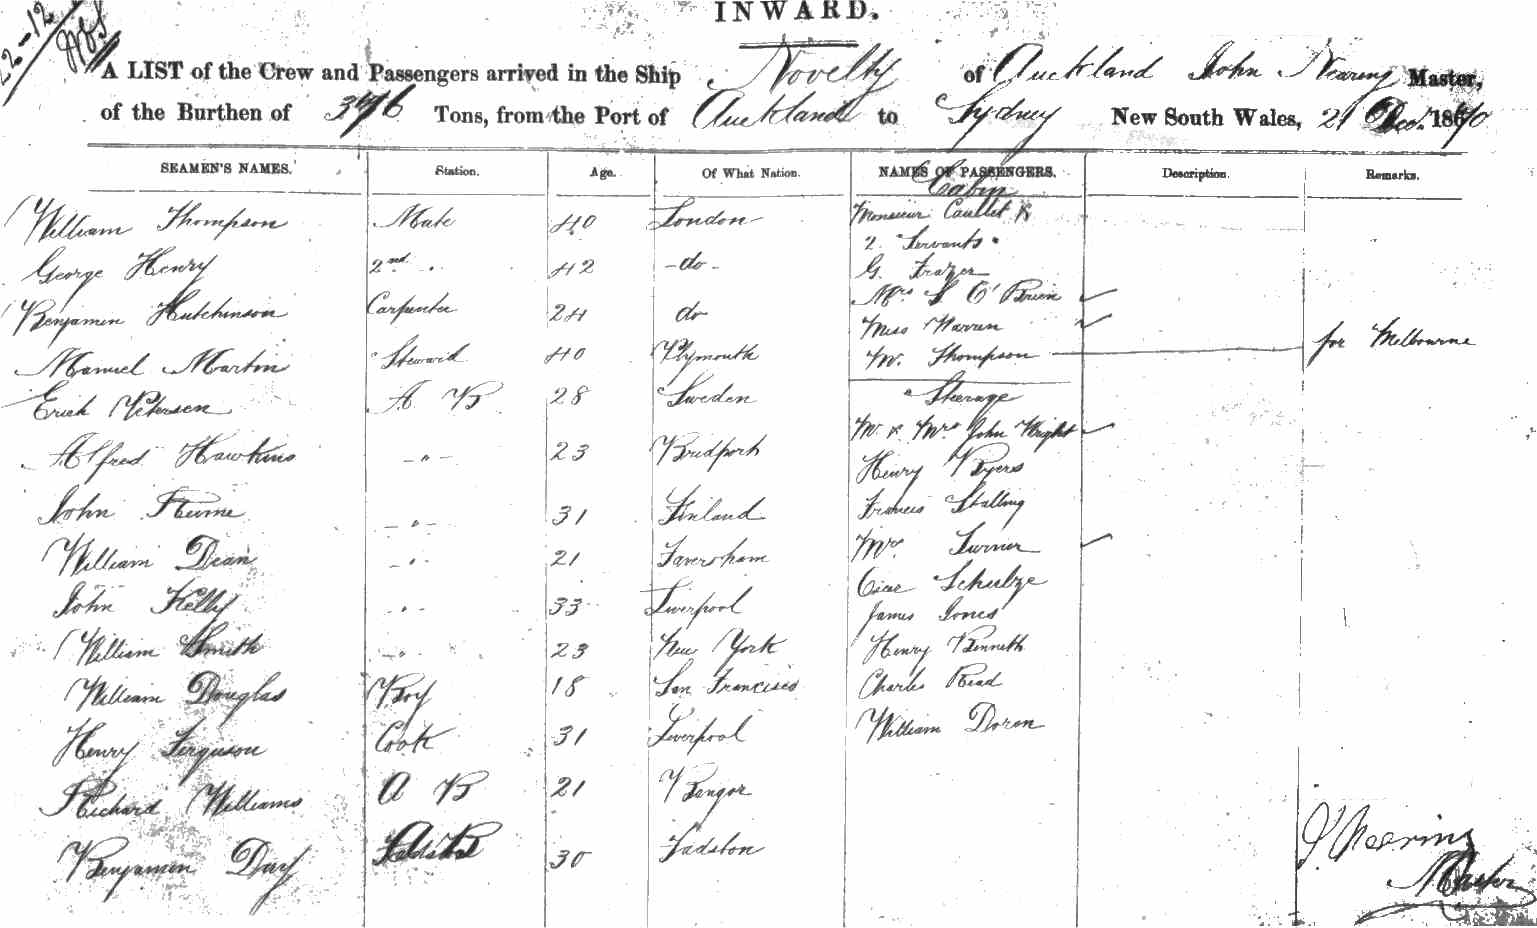 22-12
INWARD.
A LIST of the Crew and Passengers arrived in the Ship Novelty of Auckland John Nearing Master,
of the Burthen of 376 Tons, from the Port of Auckland to Sydney New South Wales, 21 Decr. 1870
SEAMEN'S NAMES. Station. Age. Of What Nation. NAMES OF PASSENGERS. Description. Remarks.
Cabin
William Thompson Mate 40 London Monsieur Caullet &
2 Servants
George Henry 2nd " 42 -do- G. Frazer
Mrs S O'Brien ✓
Benjamen Hutchinson Carpenter 24 do Miss Warren ✓
Manuel Martin Steward 40 Plymouth Mr. Thompson for Melbourne
Erick Petersen A B 28 Sweden Steerage
Mr. & Mrs John Wright ✓
Alfred Hawkins -"- 23 Bridport Henry Byers
John Hume -"- 31 Finland Francis Stalling
William Dean -"- 21 Faversham Mrs. Turner ✓
Oscar Schulze
John Kelly -"- 33 Liverpool James Jones
William Smith -"- 23 New York Henry Bennett
William Douglas Boy 18 San Francisco Charles Read
Henry Ferguson Cook 31 Liverpool William Doren
Richard Williams A B 21 Bangor
Benjamen Day A B 30 Padston
J Nearing
Master